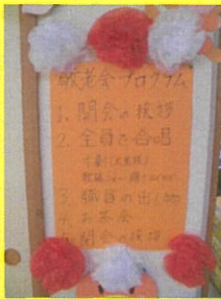 敬老会プログラム
1. 開会の挨拶
2. 全員で合唱
3. 職員の出し物
4. お茶会
5. 閉会の挨拶